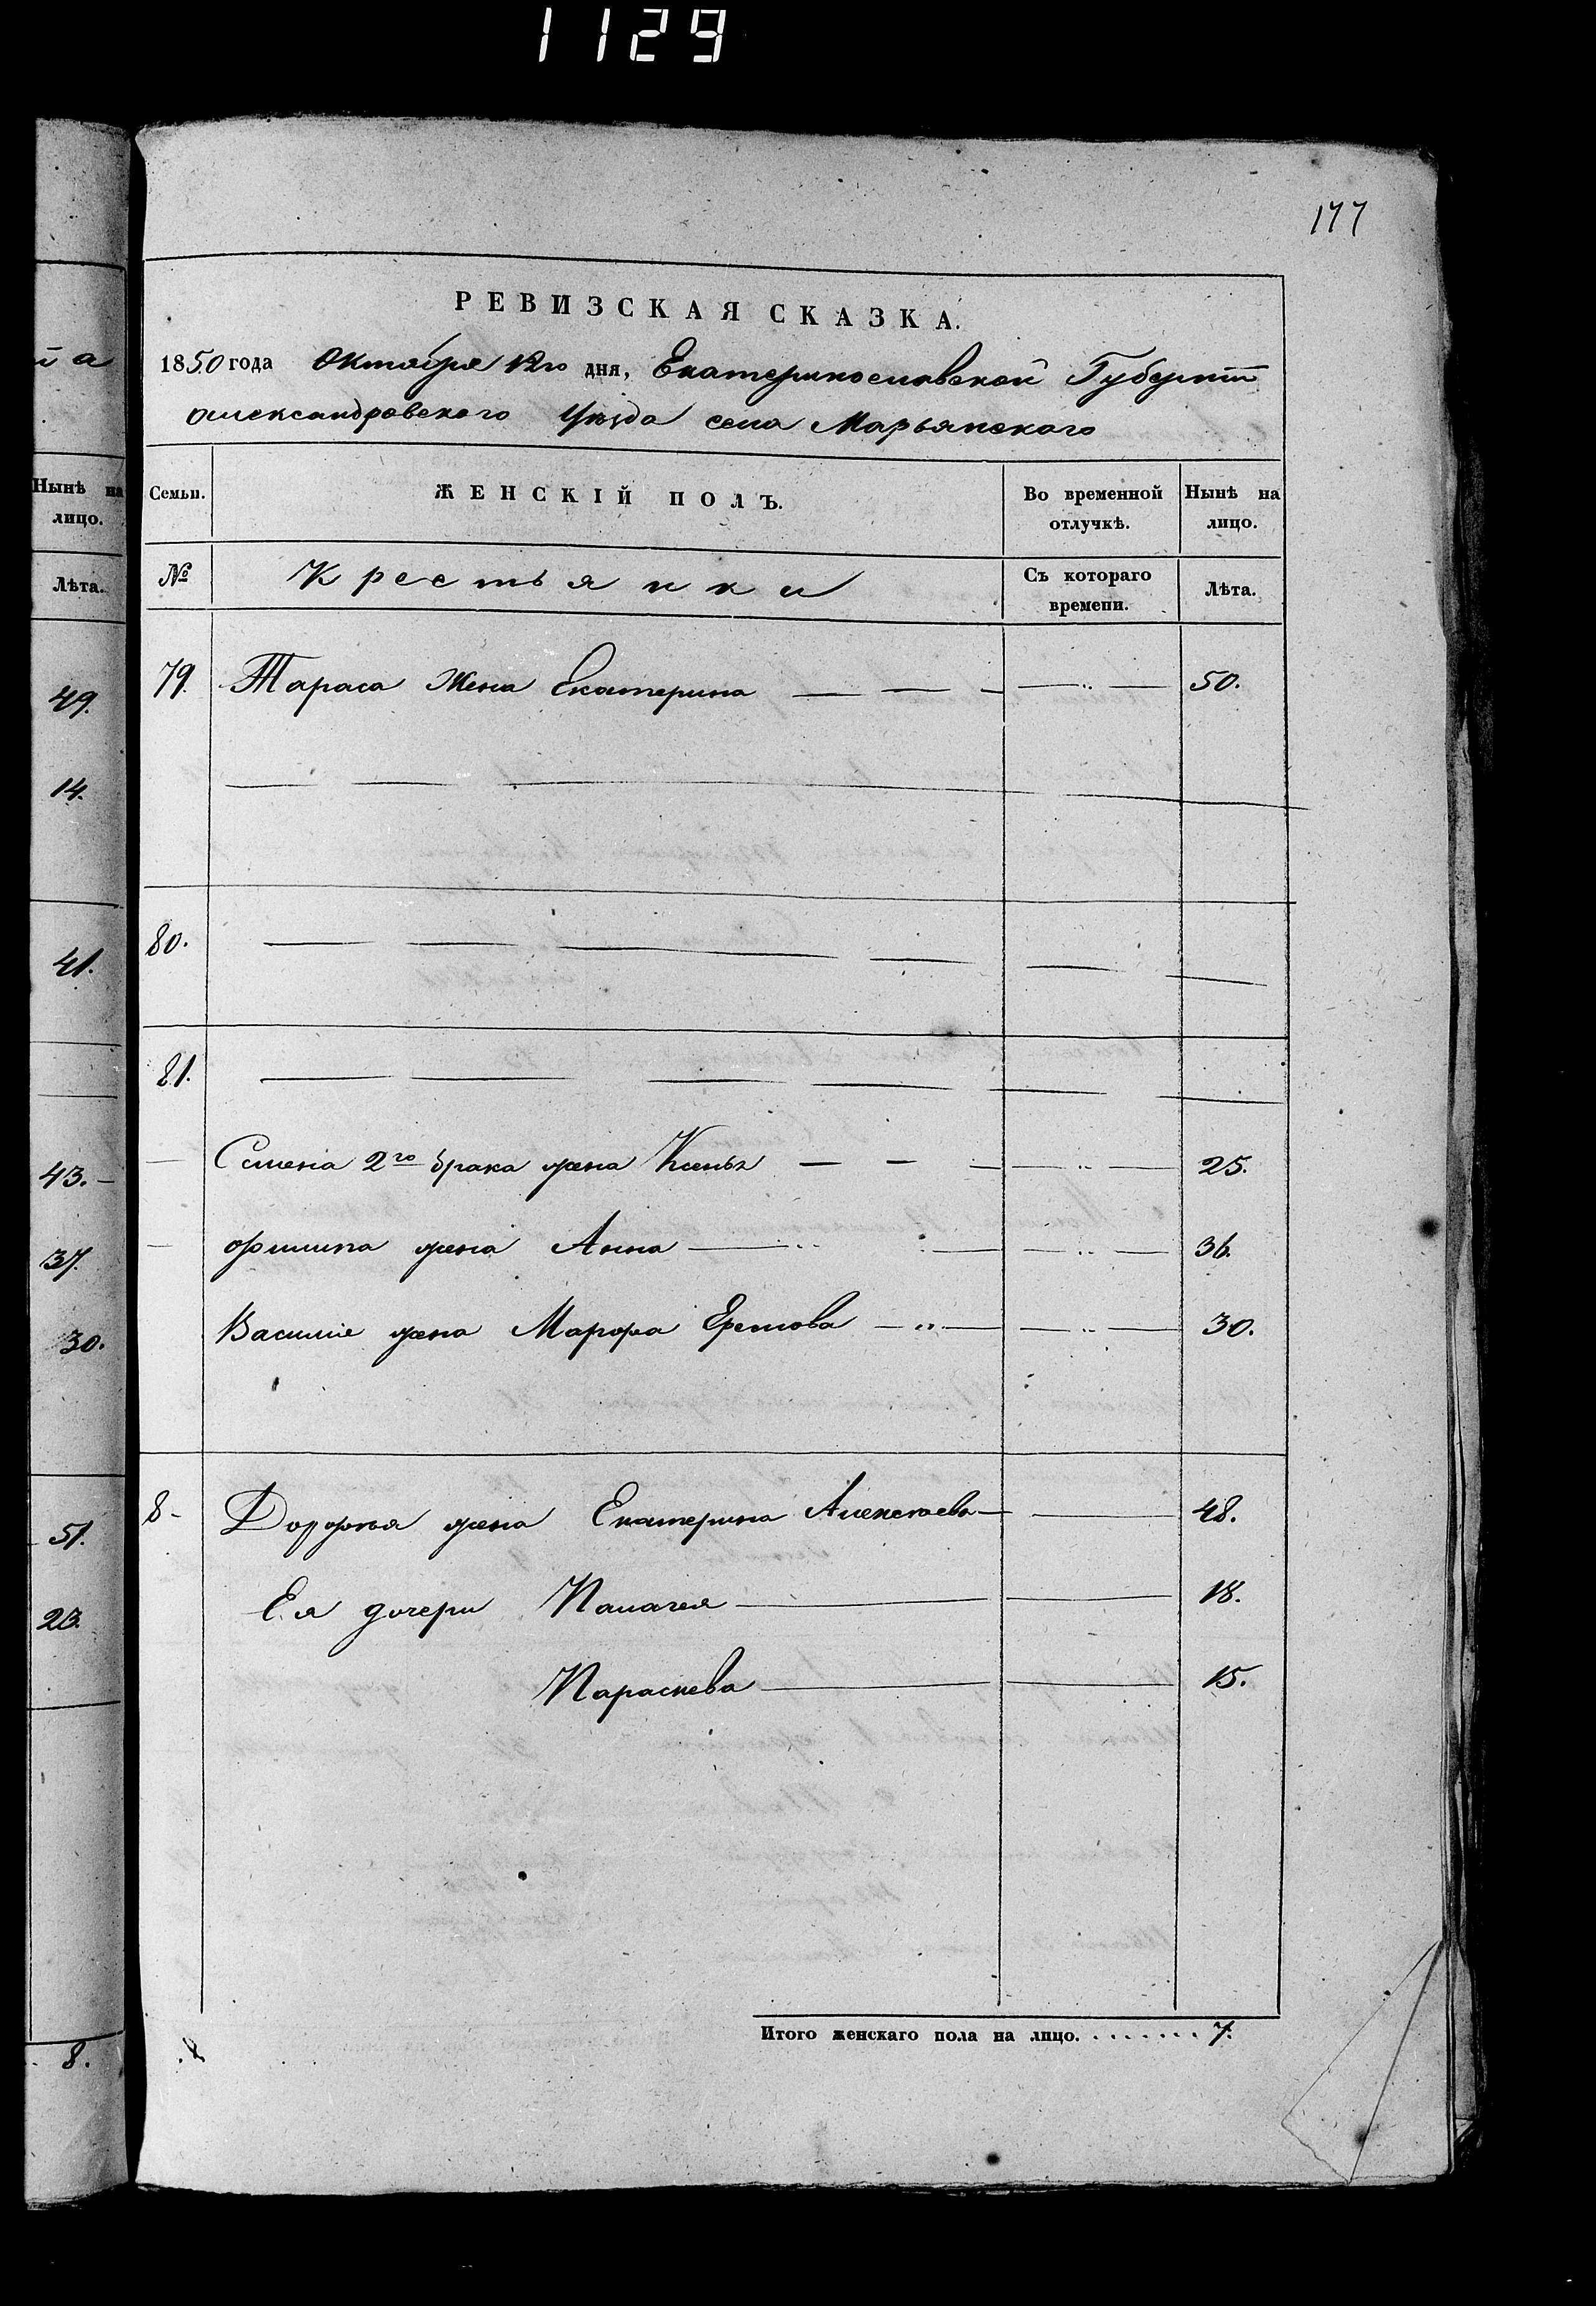 1129
177
РЕВИЗСКАЯ СКАЗКА.
1850 года Октября 12го дня, Екатеринославской Губернии
Александровского Уезда села Марьянского
й а
Нынѣ на лицо.
Лѣта.
49.
14.
41.
43. –
37.
30.
51.
23.
8.
Семьи. ЖЕНСКІЙ ПОЛЪ. Во временной отлучкѣ. Нынѣ на лицо.
№ Крестьянки Съ котораго времени. Лѣта.
79. Тараса Жена Екатерина — — – — „ — 50.
80.
81.
Смена 2го брака жена — — – — „ — 25.
Филипа жена Анна — „ — — „ — 36.
Василия жена Марфа — „ — — „ — 30.
8 - жена Екатерина Алексеева — — 48.
Ея дочери Палагея — — 18.
Параскева — — 15.
Итого женскаго пола на лицо. . . . . . . . 7.